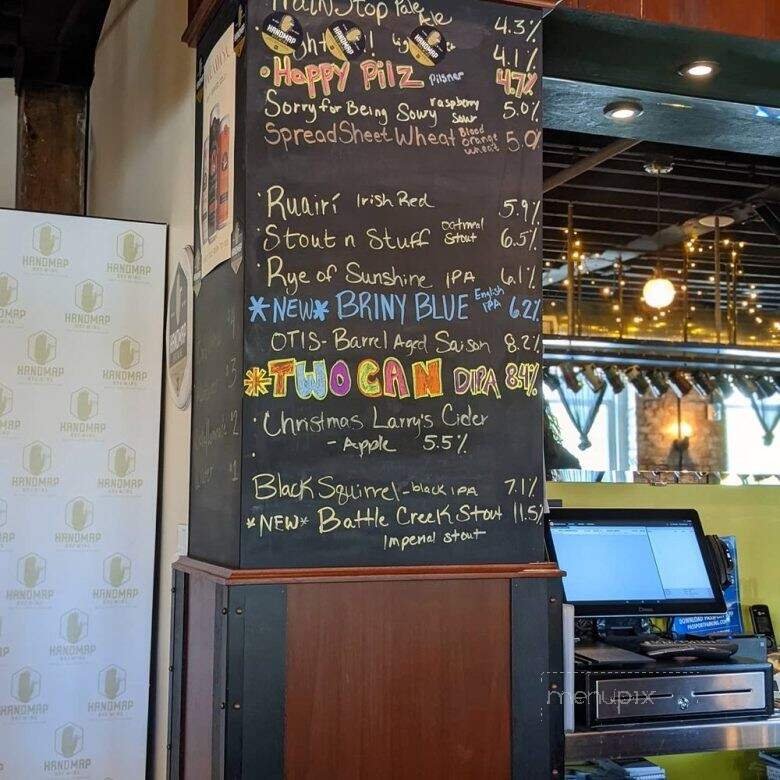 Train Stop Pale Ale 4.3%
4.1%
Happy Pilz Pilsner 4.7%
Sorry for Being Sowy raspberry sour 5.0%
SpreadSheet Wheat Blood orange wheat 5.0
Ruairí Irish Red 5.9%
Stout n Stuff Oatmeal Stout 6.5%
Rye of Sunshine IPA 6.1%
*NEW* BRINY BLUE English IPA 6.2%
OTIS - Barrel Aged Saison 8.2%
*TWO CAN DIPA 8.4%
Christmas Larry's Cider
- Apple 5.5%
Black Squirrel - black IPA 7.1%
*NEW* Battle Creek Stout 11.5%
Imperial stout
HANDMAP
BREWING
DOWNLOAD
menupix